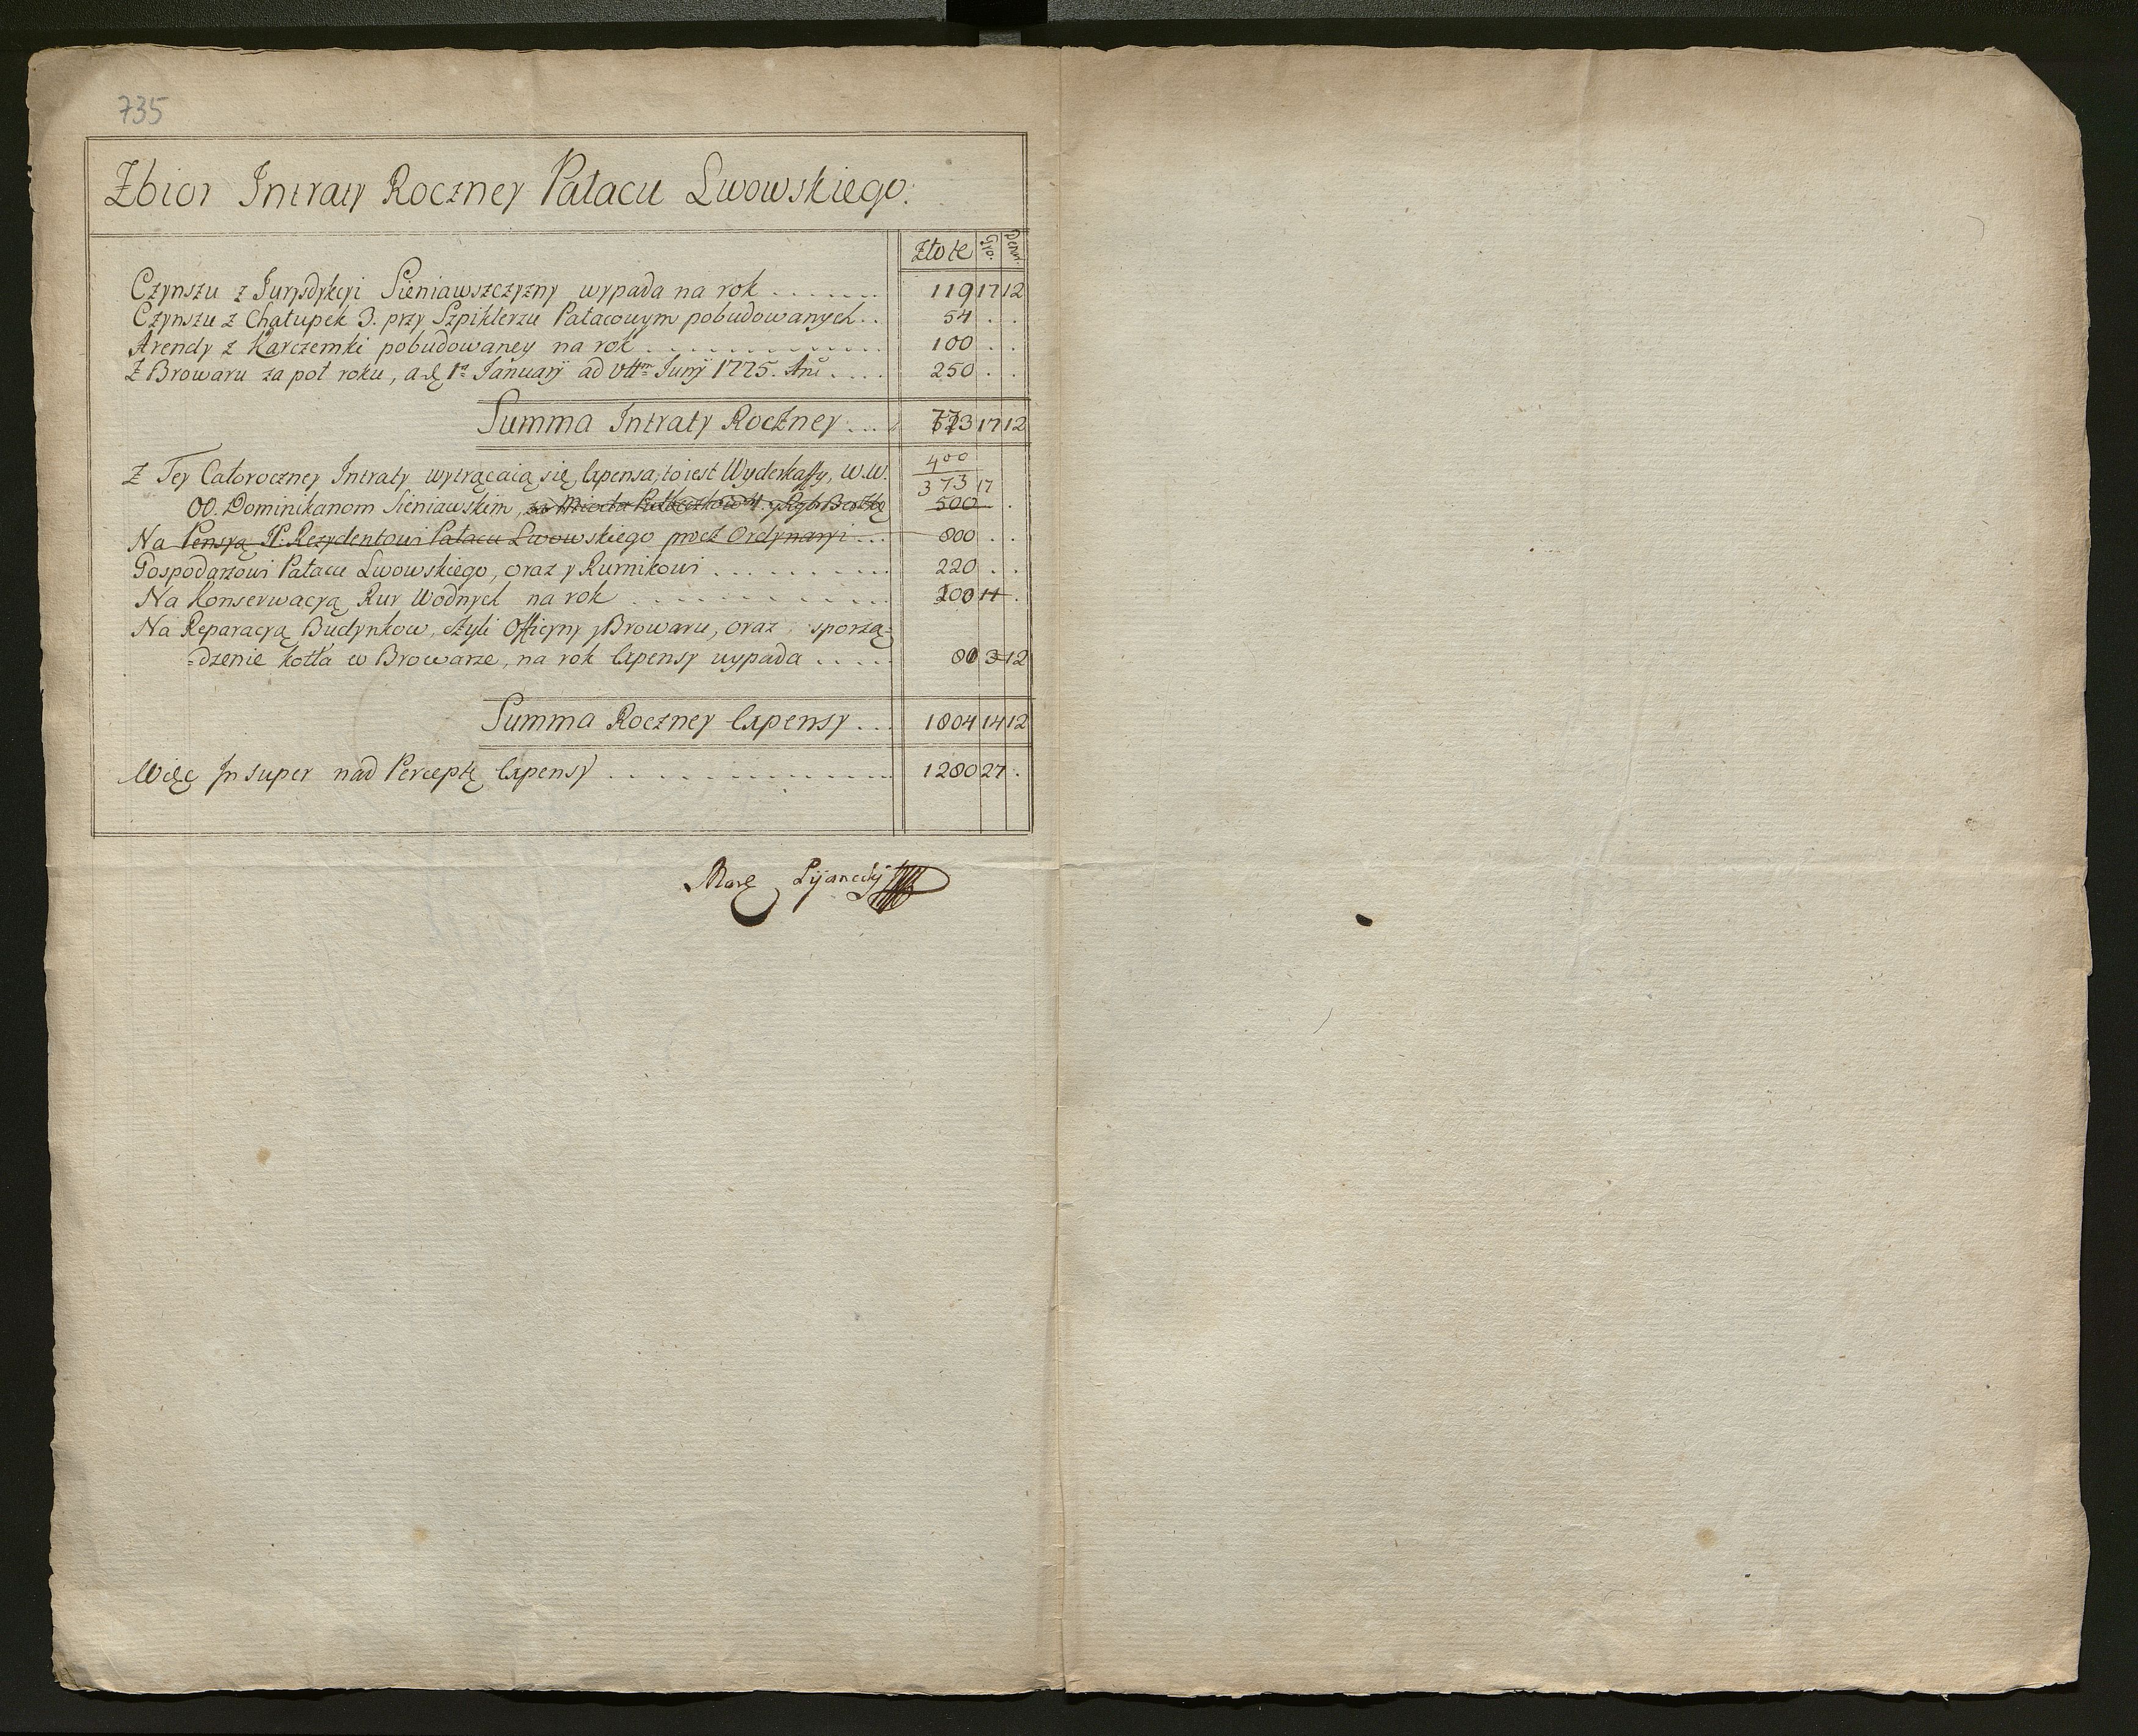 735
Zbior Intraty Roczney Pałacu Lwowskiego.
Złote Gro. Denar.
Czynszu z Jurysdykcyi Sieniawszczyzny wypada na rok ....... 119 17 12
Czynszu z Chałupek 3. przy Szpiklerzu Pałacowym pobudowanych.. 54 . .
Arendy z Karczemki pobudowaney na rok ............. 100 . .
Z Browaru za poł roku, a 1a Januarij ad Junij 1775. .... 250 . .
Summa Intraty Roczney ... 523 17 12
Z Tey Całoroczney Intraty wytrącaią się Expensa, to iest Wyderkaffy, W.W. 400
373 17
OO. Dominikanom Sieniawskim, 500 .
Na Pensyą JP. Rezydentowi Pałacu Lwowskiego procz Ordynaryi ... 800 . .
Gospodarzowi Pałacu Lwowskiego, oraz y Rurnikowi .......... 220 . .
Na Konserwacyą Rur Wodnych na rok ............ 200 11 .
Na Reparacyą Budynkow, czyli Officyny y Browaru, oraz, sporzą=
=dzenie kotła w Browarze, na rok Expensy wypada ..... 80 3 12
Summa Roczney Expensy ... 1804 14 12
Więc In super nad Perceptę Expensy .............. 1280 27 .